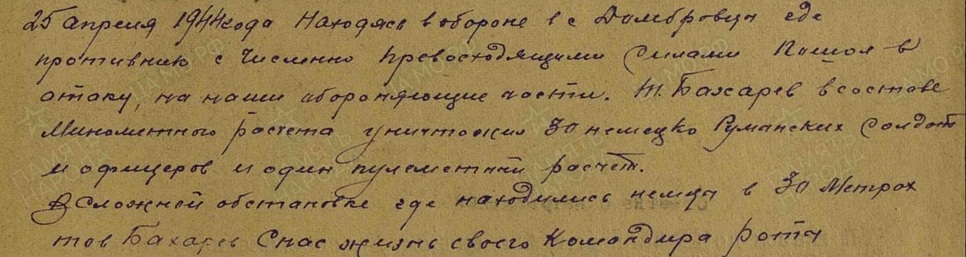 25 апреля 1944 года Находясь в обороне в с Думбровица где
противник с численно превосходящими силами Пошол в
атаку, на наши обороняющие части. Т. Бахарев в составе
Минометного расчета уничтожил 30 немецко Румынских Солдат
и офицеров и один пулеметний расчет.
В сложной обстановке где находились немцы в 30 Метрах
тов Бахарев Спас жизнь своего Командира роты